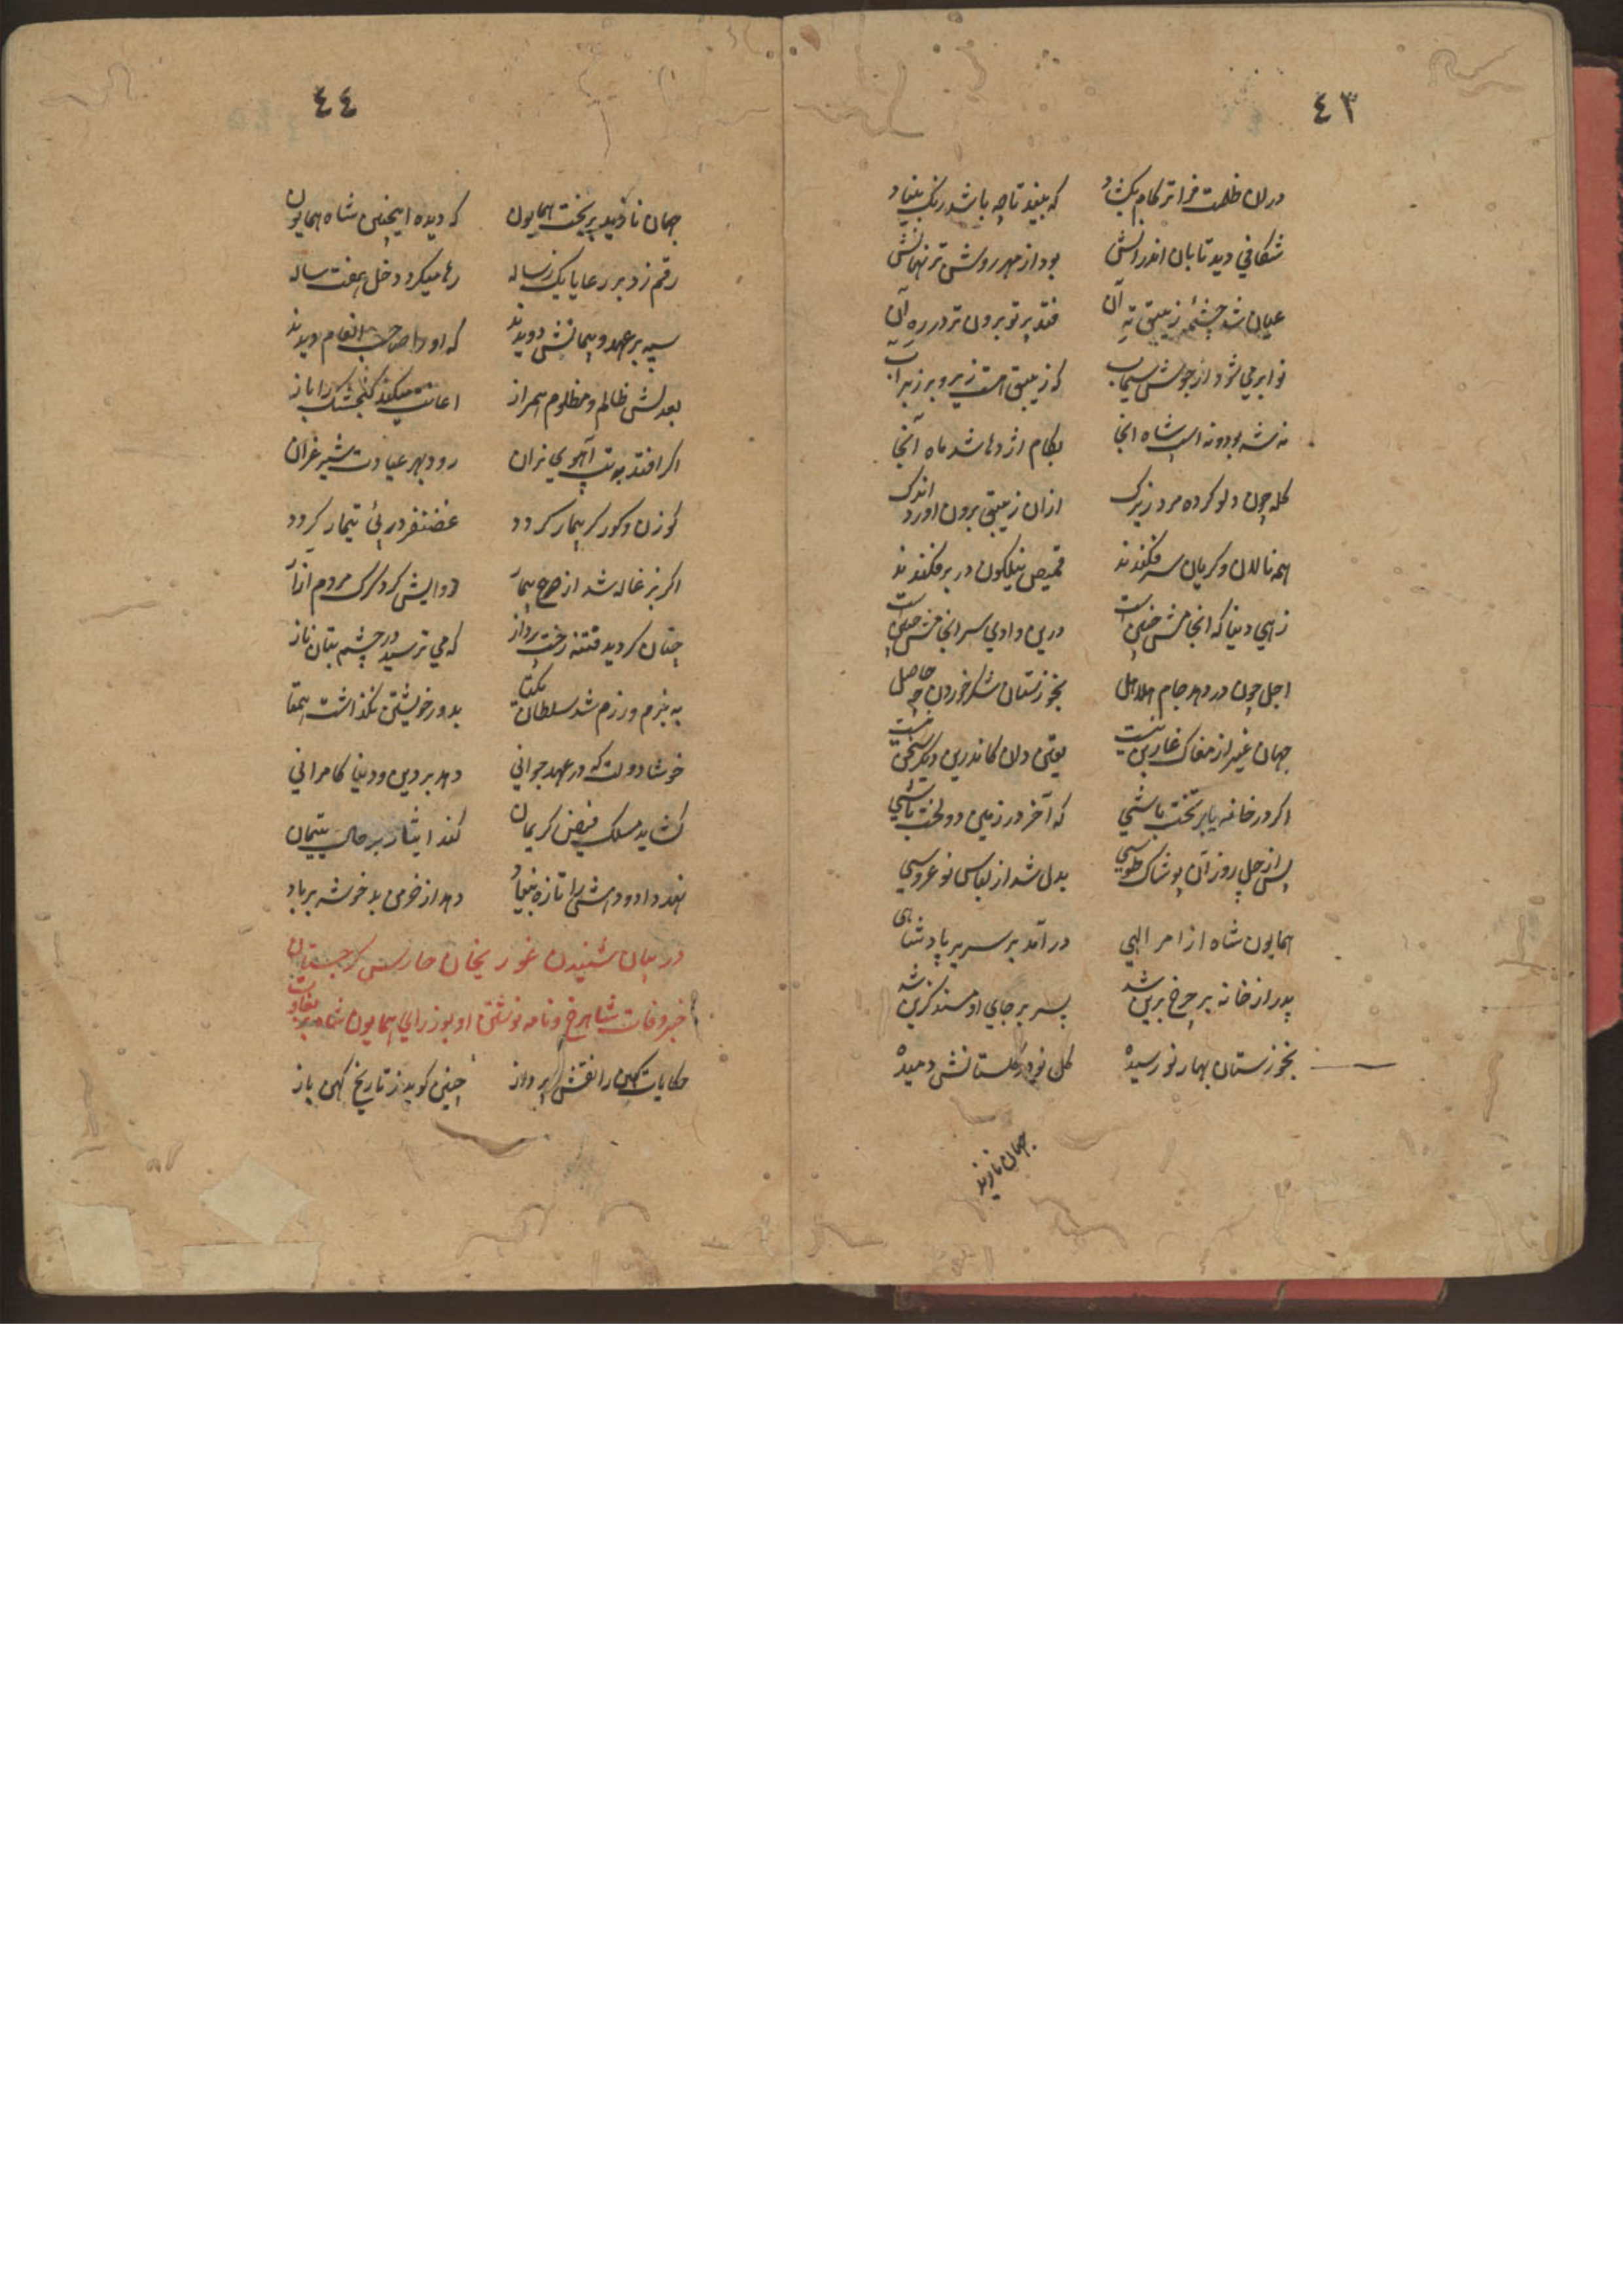 ٤٣
دران ظلمت فراتر کام بکشاد که بیند تا چه باشد رنک بنیاد
شکافي دید تابان اندرانش بود از مهر روشن تر نهانش
عیان شد چشمه زیبق ته آن فتد پرتو برون تر در ره آن
نوا بر می شود از جوشش سیماب که زیبق است زیر و بر زبر آب
نه شه بود و نه اسب شاه انجا بکام اژدها شد ماه آنجا
کله چون دلو کرده مرد زیرک ازان زیبق برون اورد اندک
همه نالان و کریان سر فکندند قمیص نیلکون در بر فکندند
زهي دنیا که انجامش چنین است درین وادي سرانجامش چنین است
اجل چون در دهد جام هلاهل بخوزستان شکر خوردن چه حاصل
جهان غیر از مغاک غار پین نیست یقین دان کاندرین دیکر سخن نیست
اکر در خانه یا بر تخت باشي که آخر در زمین دو لخت باشي
پس از چل روز آن پوشاک طوسي بدل شد از لباس نو عروسي
همایون شاه از امر الهي درآمد بر سریر پادشاهی
پدر از خانه بر چرخ برین شد پسر بر جاي او مسند کزین شد
بخوزستان بهار نو رسیده کل نو در کلستانش دمیده
جهان نازند
٤٤
جهان نازید بر بخت همایون که دیده اینچنین شاه همایون
رقم زد بر رعایا یک رساله رها میکرد دخل هفت ساله
سپه بر عهد و پیمانش دویدند که او را صاحب انعام دیدند
بعدلش ظالم و مظلوم همراز اعانت میکند کنجشک را باز
اکر افتد به تب آهوي نران رود بهر عیادت شیر غران
کوزن و کور کر بیمار کردد غضنفر در پئ تیمار کردد
اکر بزغاله شد از جوع بیمار دوایش کرد کرک مردم ازار
چنان کردید فتنه رخت پرداز که مي ترسید در چشم بتان ناز
به بزم و رزم شد سلطان یکتا بدور خویشتن نکذاشت همتا
خوشا دولت که در عهد جواني دهد بر دین و دنیا کامراني
کشاید مسلک فیض کریمان کند ایثار بر حال یتیمان
نهد داد و دهش را تازه بنیاد دهد از خرمن بد خوشه بر باد
در بیان شنیدن غوریخان حارس کرجستان
خبر وفات شاهرخ و نامه نوشتن او بوزراي همایون شاه
حکایات کهن را نقش پرداز چنین کوید ز تاریخ کهن باز